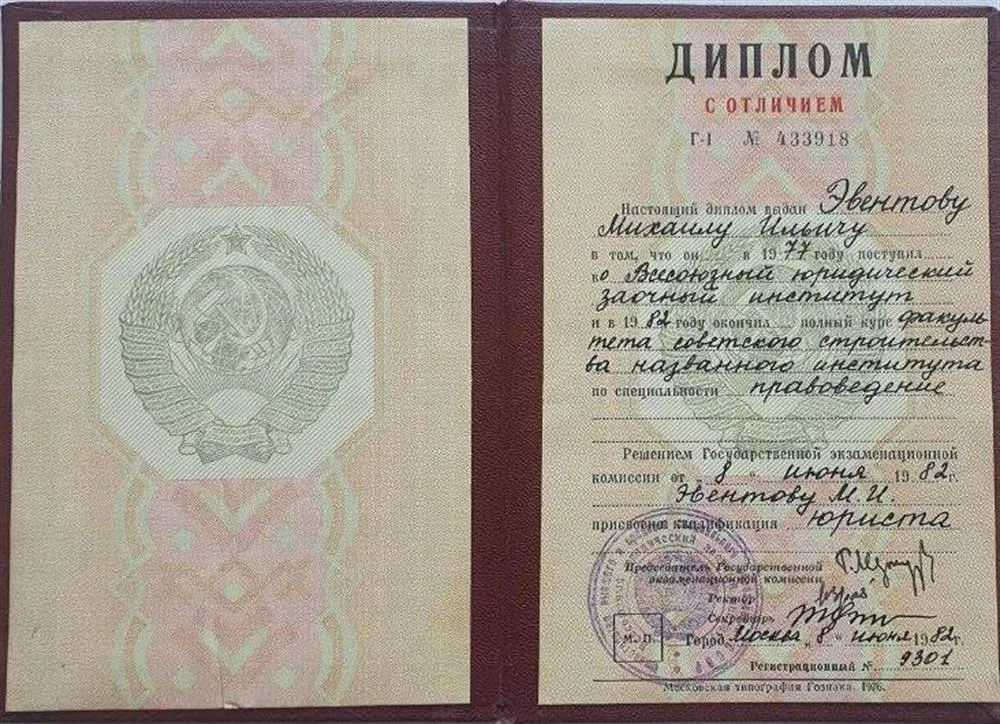 ДИПЛОМ
С ОТЛИЧИЕМ
Г-I № 433918
Настоящий диплом выдан Эвентову
Михаилу Ильичу
в том, что он в 1977 году поступил
во Всесоюзный юридический
заочный институт
и в 1982 году окончил полный курс факуль-
тета советского строительст-
ва названного института
по специальности правоведение
Решением Государственной экзаменационной
комиссии от "8" июня 1982 г.
Эвентову М. И.
присвоена квалификация юриста
Председатель Государственной
экзаменационной комиссии
Ректор
Секретарь
М. П. Город Москва "8" июня 1982 г.
Регистрационный № 9301
Московская типография Гознака. 1976.